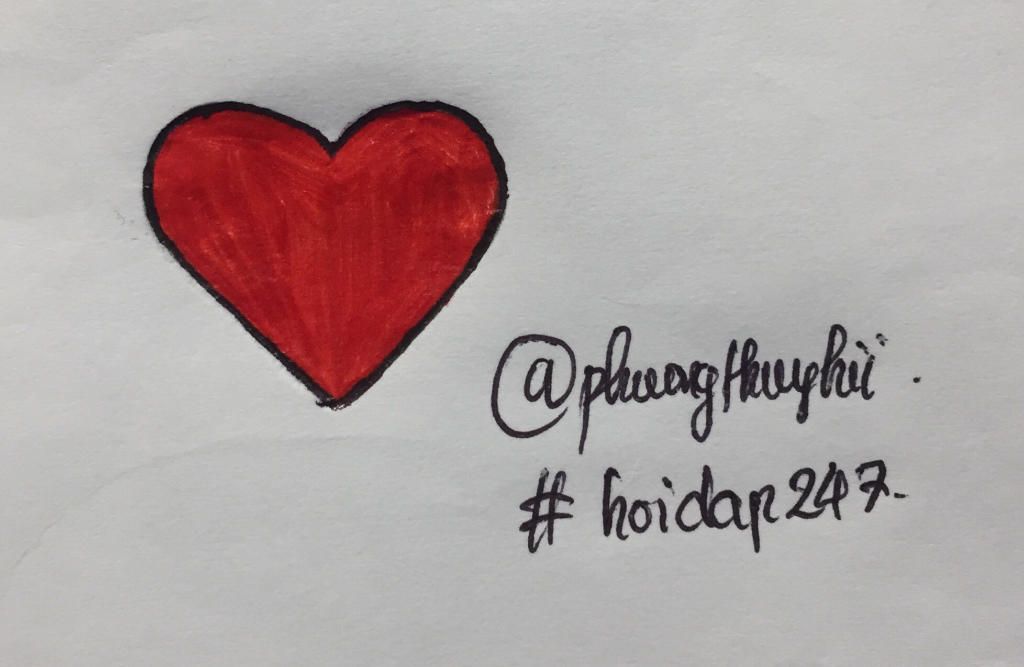 @phuongthuyhii .
# hoidap247.